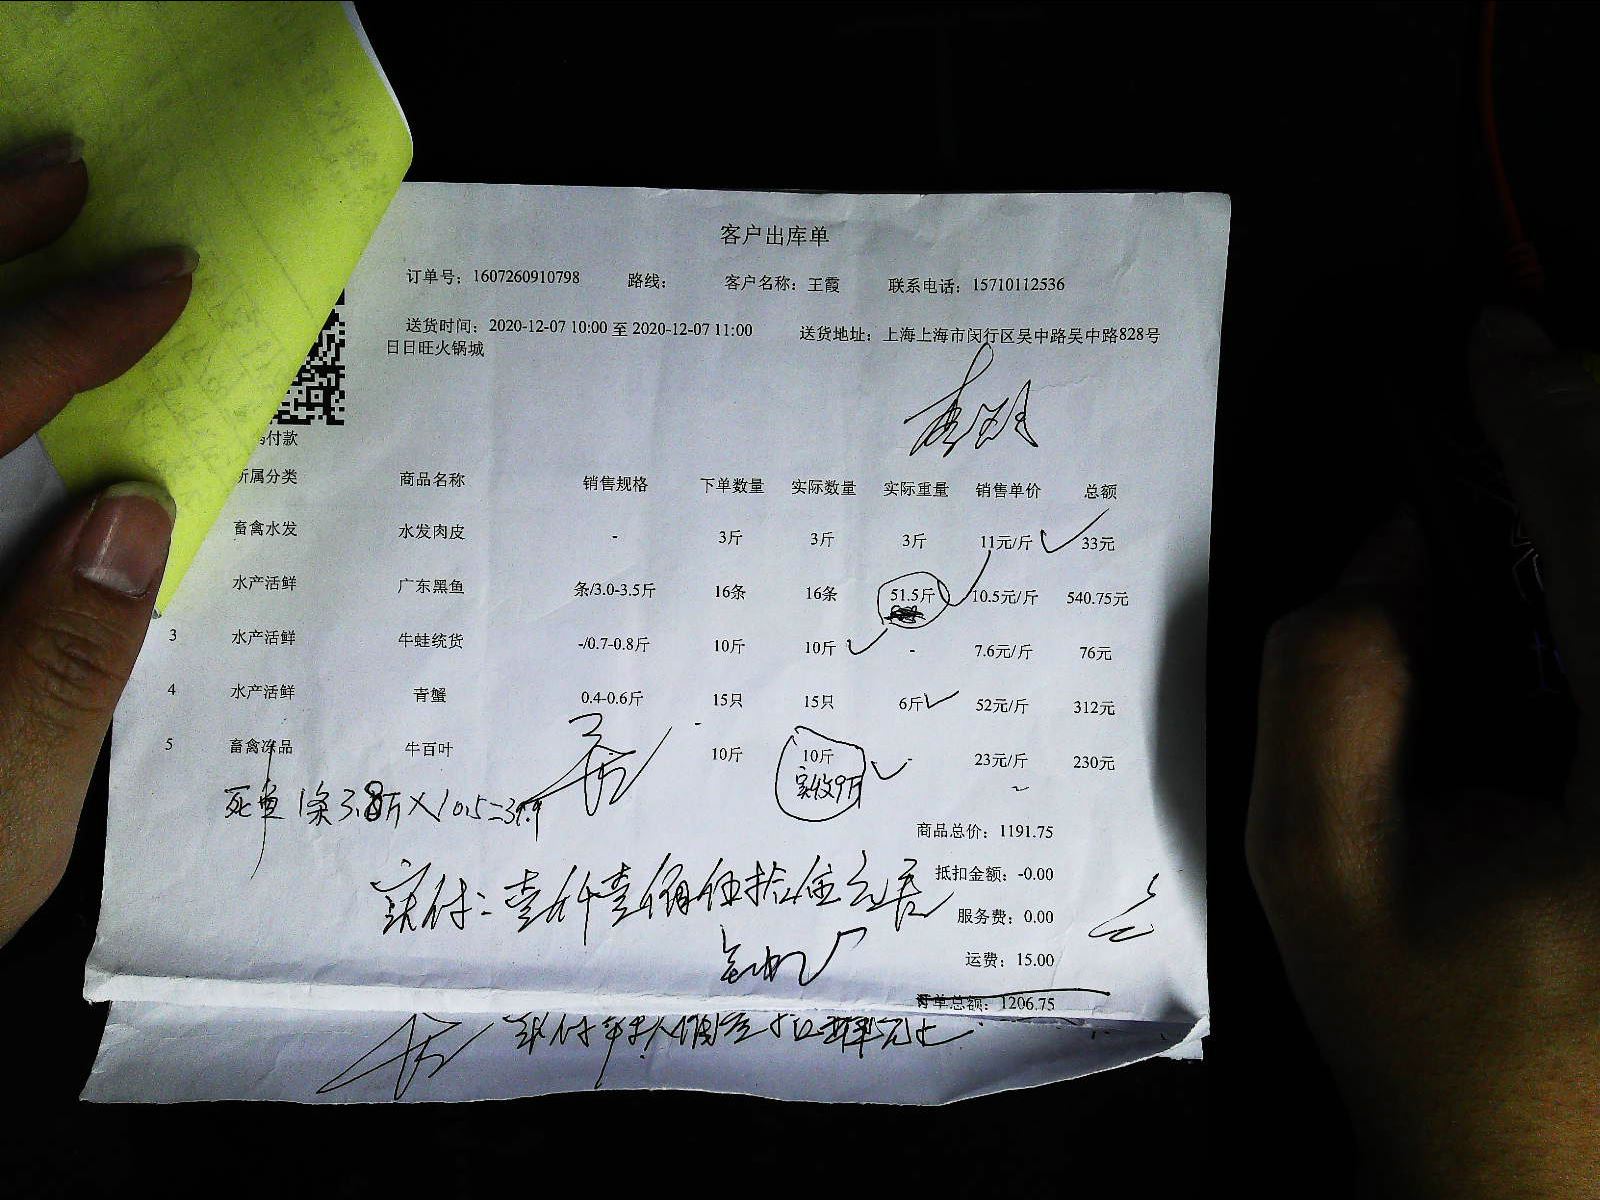 客户出库单
订单号：1607260910798 路线： 客户名称：王霞 联系电话：15710112536
送货时间：2020-12-07 10:00 至 2020-12-07 11:00 送货地址：上海上海市闵行区吴中路吴中路828号
日日旺火锅城
付款
所属分类 商品名称 销售规格 下单数量 实际数量 实际重量 销售单价 总额
畜禽水发 水发肉皮 - 3斤 3斤 3斤 11元/斤 33元
水产活鲜 广东黑鱼 条/3.0-3.5斤 16条 16条 51.5斤 10.5元/斤 540.75元
3 水产活鲜 牛蛙统货 -/0.7-0.8斤 10斤 10斤 - 7.6元/斤 76元
4 水产活鲜 青蟹 0.4-0.6斤 15只 15只 6斤 52元/斤 312元
5 畜禽冻品 牛百叶 - 10斤 10斤 - 23元/斤 230元
实收9斤
死鱼1条3.8斤×10.5=39.9
商品总价：1191.75
抵扣金额：-0.00
实付：壹仟壹佰伍拾伍元
服务费：0.00
运费：15.00
订单总额：1206.75